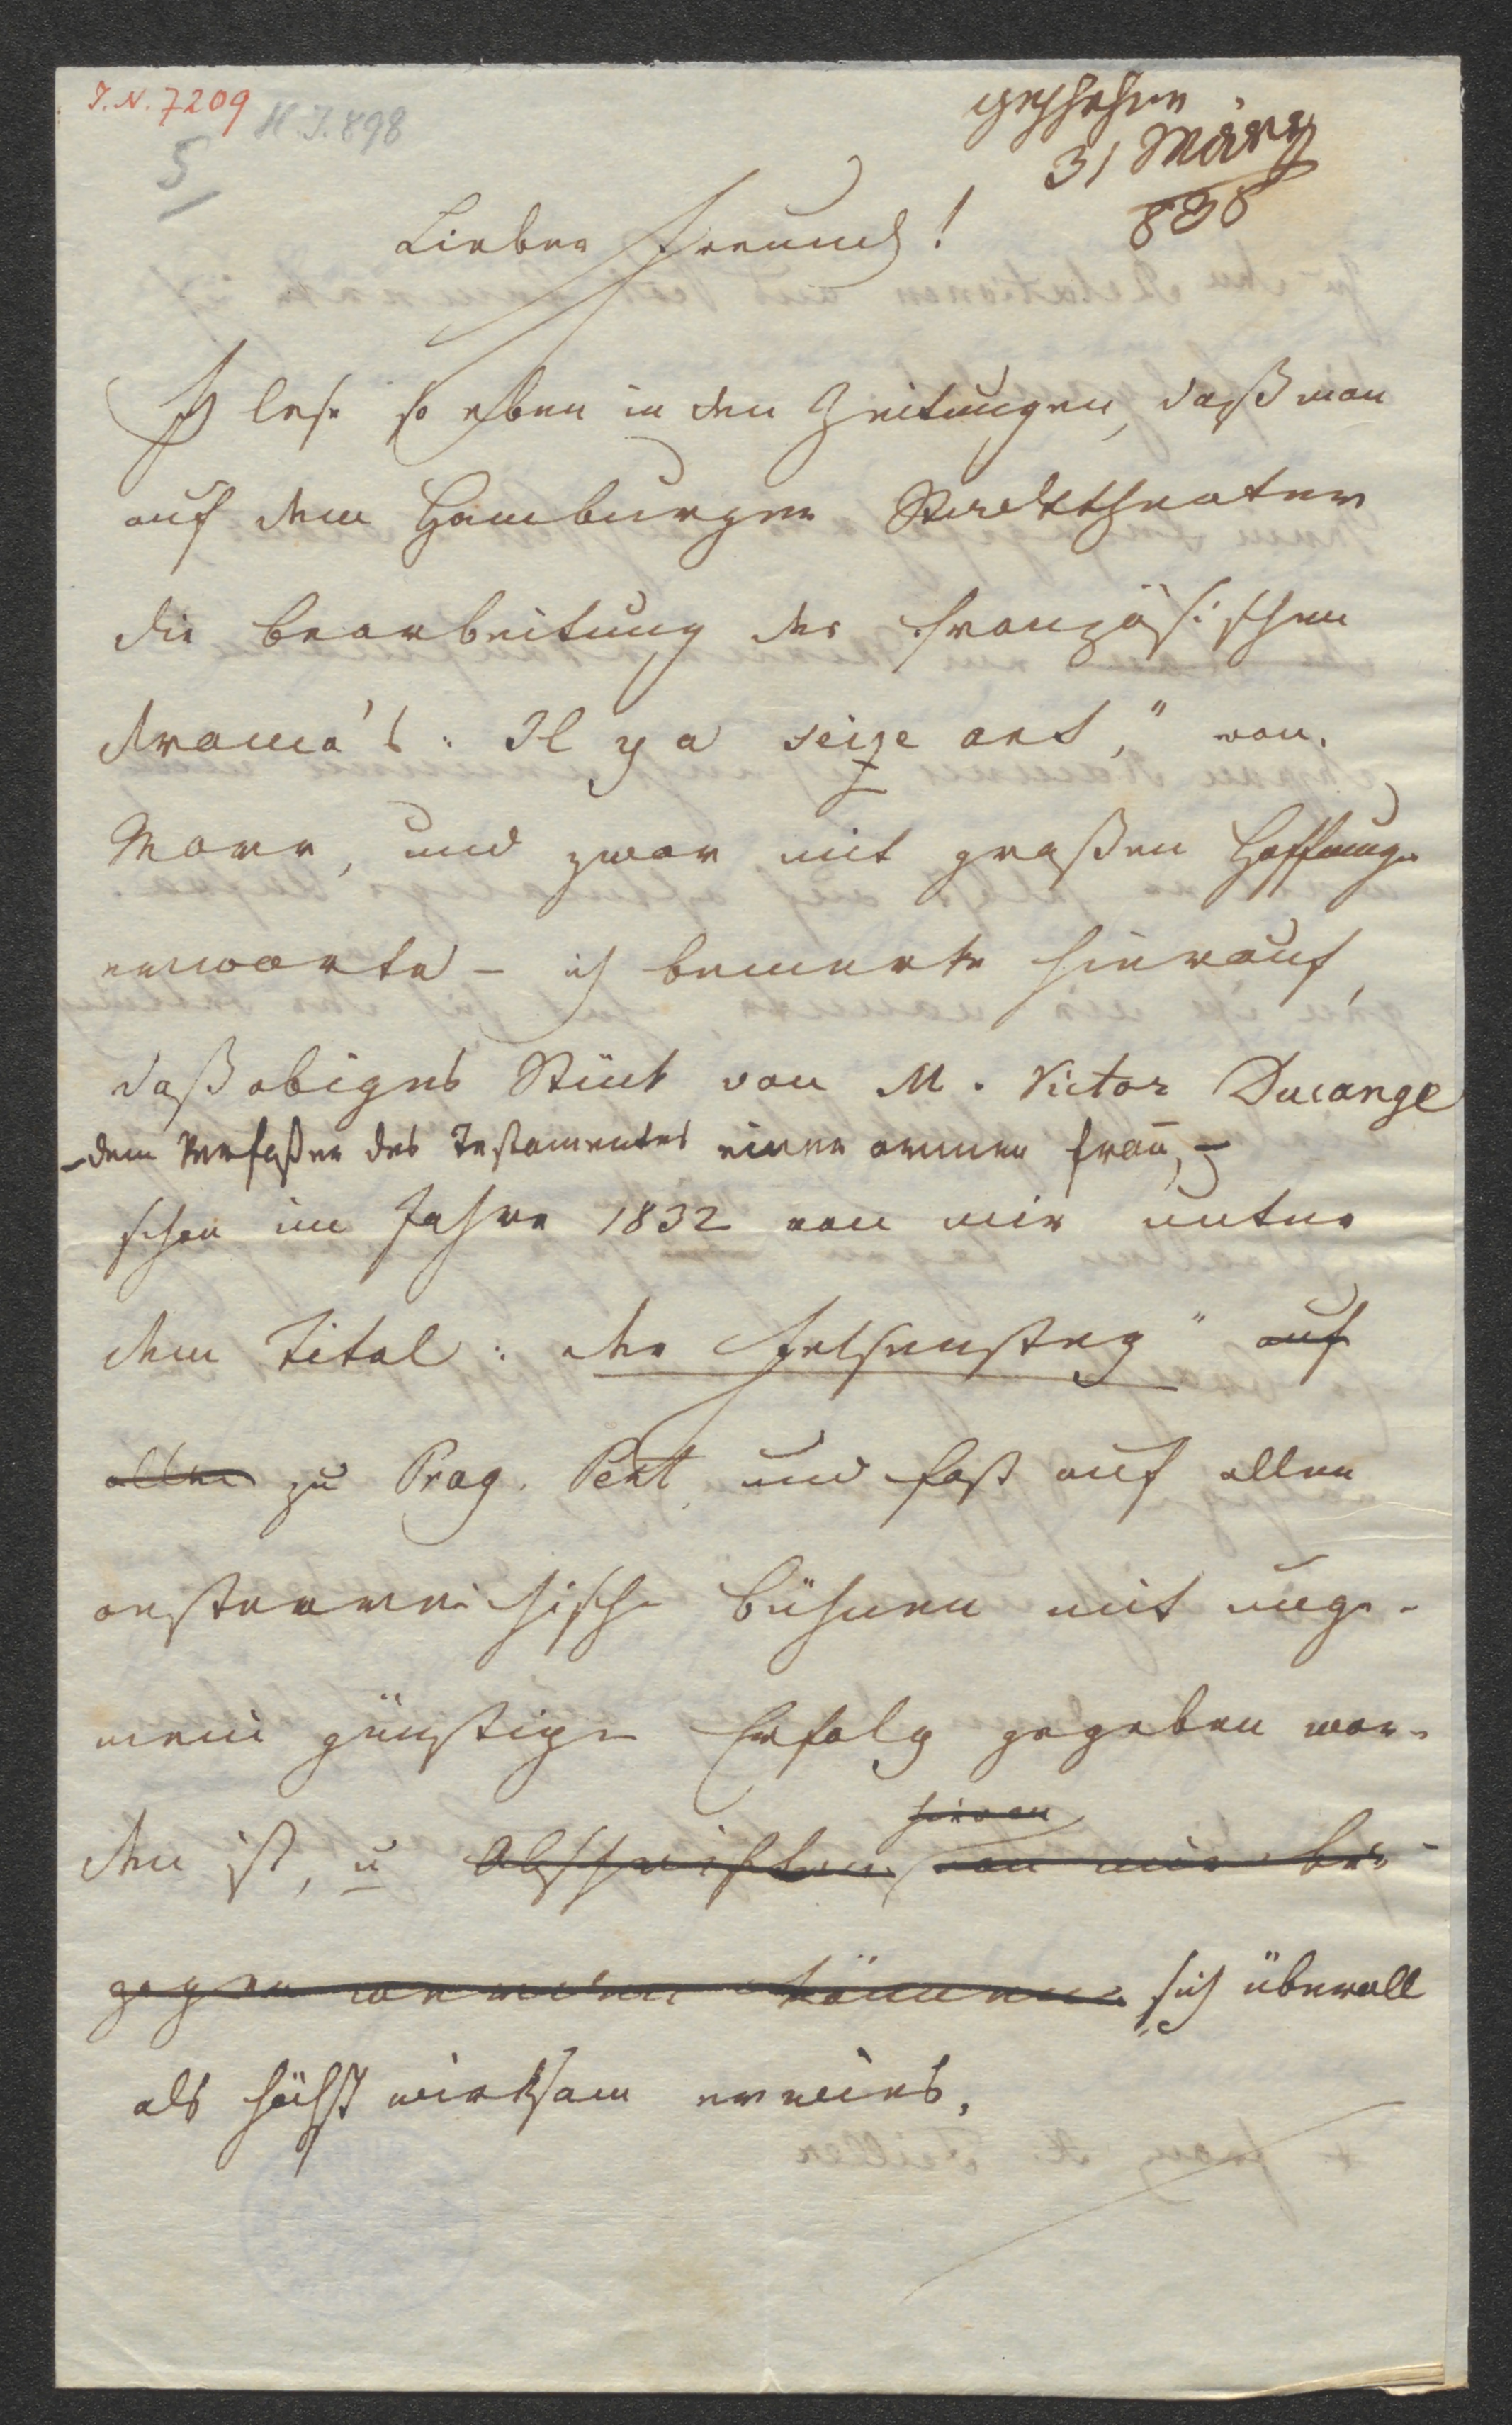 I.N. 7209
H.I. 898
5
geschehen
31 März
838
Lieber Freund!
Ich lese so eben in den Zeitungen, daß man
auf dem Hamburger Stadttheater
die Bearbeitung des französischen
Drama's: Il y a seize ans," von
Marr, und zwar mit großen Hoffnunge
erwarte – ich bemerke hierauf,
daß obiges Stück von M. Victor Ducange
– dem Verfaßer des Testamentes einer armen Frau, –
schon im Jahre 1832 von mir unter
dem Titel: der Felsensteg" auf
allen zu Prag, Pest, und fast auf allen
oesterreichische Bühnen mit unge-
mein günstigen Erfolg gegeben wor-
den ist, u Abschriften hievon von mir be-
zogen werden können. sich überall
als höchst wirksam erwies.